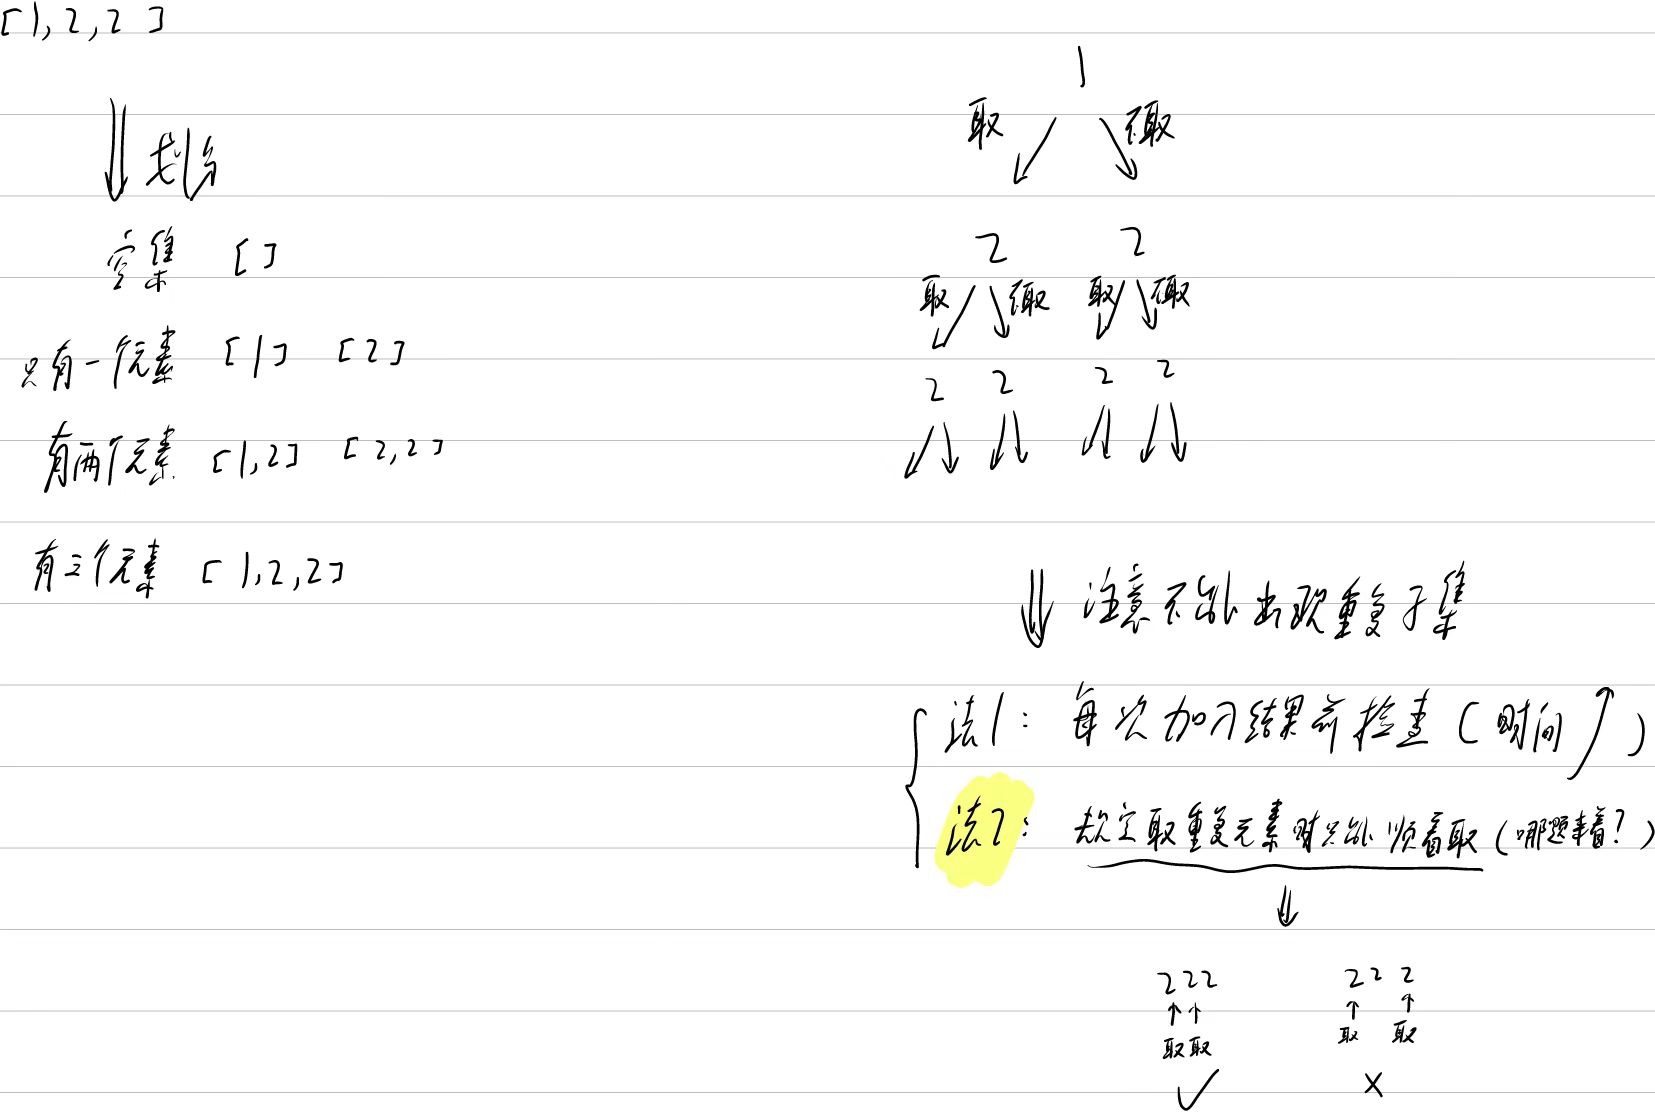 [1,2,2]
划分
空集 []
只有一个元素 [1] [2]
有两个元素 [1,2] [2,2]
有三个元素 [1,2,2]
1
取 不取
2 2
取 不取 取 不取
2 2 2 2
注意不能出现重复子集
法1: 每次加入结果前检查(时间↑)
法2: 规定取重复元素时只能顺着取(哪题来着?)
222 22 2
↑↑ ↑ ↑
取取 取 取
✓ ×